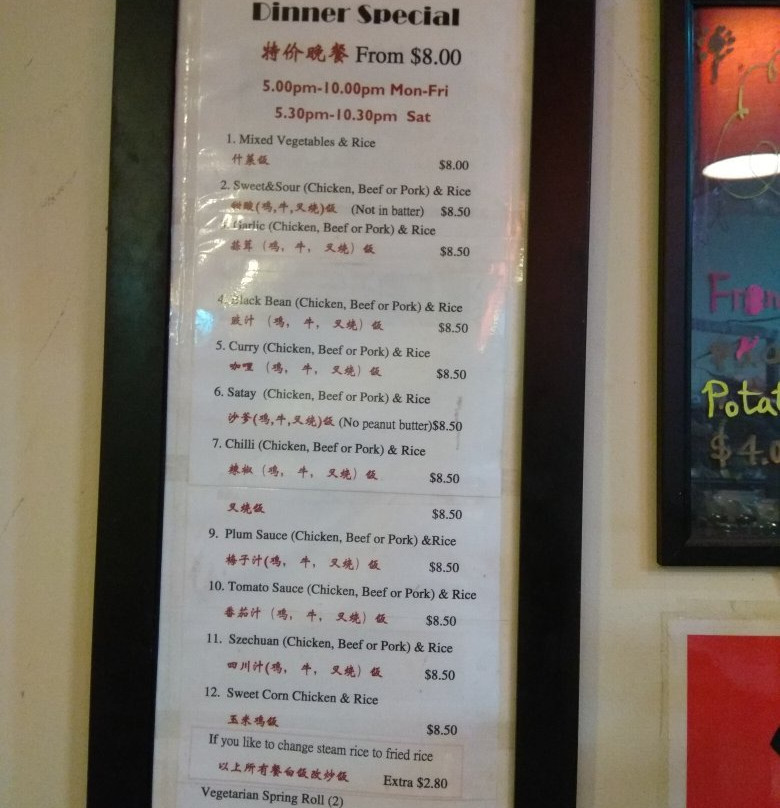 Dinner Special
特价晚餐 From $8.00
5.00pm-10.00pm Mon-Fri
5.30pm-10.30pm Sat
1. Mixed Vegetables & Rice
什菜饭 $8.00
2. Sweet&Sour (Chicken, Beef or Pork) & Rice
甜酸(鸡,牛,叉烧)饭 (Not in batter) $8.50
Garlic (Chicken, Beef or Pork) & Rice
蒜茸 (鸡, 牛, 叉烧) 饭 $8.50
4. Black Bean (Chicken, Beef or Pork) & Rice
豉汁 (鸡, 牛, 叉烧) 饭 $8.50
5. Curry (Chicken, Beef or Pork) & Rice
咖哩 (鸡, 牛, 叉烧) 饭 $8.50
6. Satay (Chicken, Beef or Pork) & Rice
沙爹(鸡,牛,叉烧)饭 (No peanut butter)$8.50
7. Chilli (Chicken, Beef or Pork) & Rice
辣椒 (鸡, 牛, 叉烧) 饭 $8.50
叉烧饭 $8.50
9. Plum Sauce (Chicken, Beef or Pork) &Rice
梅子汁(鸡, 牛, 叉烧) 饭 $8.50
10. Tomato Sauce (Chicken, Beef or Pork) & Rice
番茄汁 (鸡, 牛, 叉烧) 饭 $8.50
11. Szechuan (Chicken, Beef or Pork) & Rice
四川汁(鸡, 牛, 叉烧) 饭 $8.50
12. Sweet Corn Chicken & Rice
玉米鸡饭 $8.50
If you like to change steam rice to fried rice
以上所有餐白饭改炒饭 Extra $2.80
Vegetarian Spring Roll (2)
Potat
$4.0